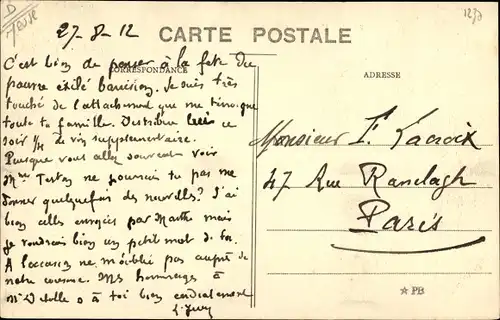 D
Meuse
1273
27-8-12
CARTE POSTALE
C'est bien de penser à la fête du
CORRESPONDANCE
ADRESSE
pauvre exilé Je suis très
touché de l'attachement que me témoigne
toute ta famille. Distribue leur ce
soir 1/4 de vin supplémentaire.
Puisque vous allez souvent voir
Mme ne pourrais tu pas me
donner quelquefois des nouvelles? J'ai
bien celles envoyées par Marthe mais
je voudrais bien un petit mot de toi.
A l'occasion ne m'oublie pas auprès de
notre cousine. Mes hommages à
à toi bien cordialement
Monsieur F. Lacroix
47 Rue Ranelagh
Paris
PB